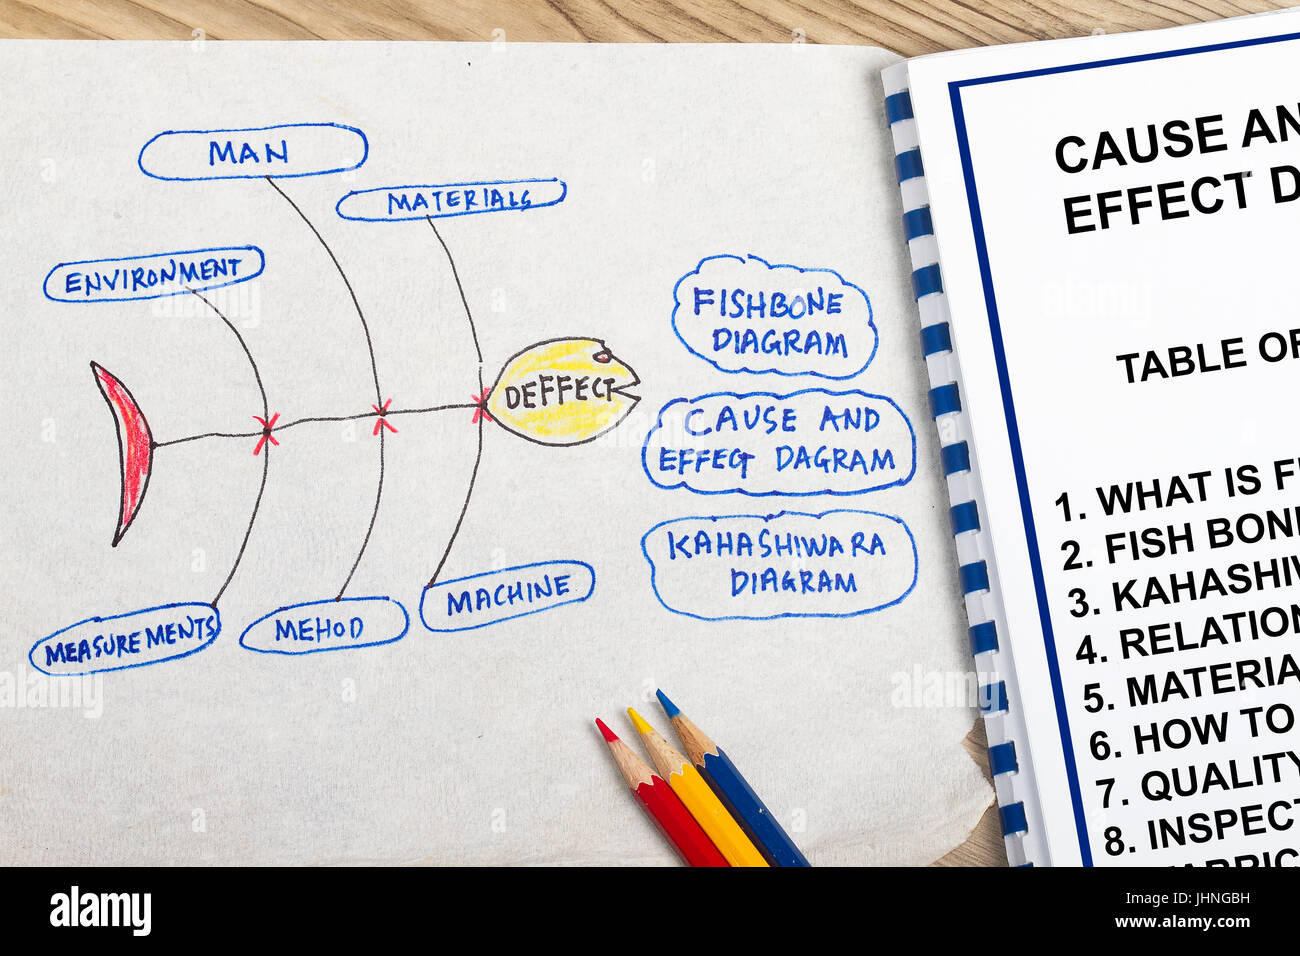 MAN
MATERIALS
ENVIRONMENT
DEFFECT
MEASUREMENTS
MEHOD
MACHINE
FISHBONE
DIAGRAM
CAUSE AND
EFFECT DAGRAM
KAHASHIWARA
DIAGRAM
CAUSE AN
EFFECT D
TABLE OF
1. WHAT IS F
2. FISH BON
3. KAHASHIW
4. RELATION
5. MATERIA
6. HOW TO
7. QUALITY
8. INSPECT
alamy
alamy
alamy
alamy
Image ID: JHNGBH
www.alamy.com